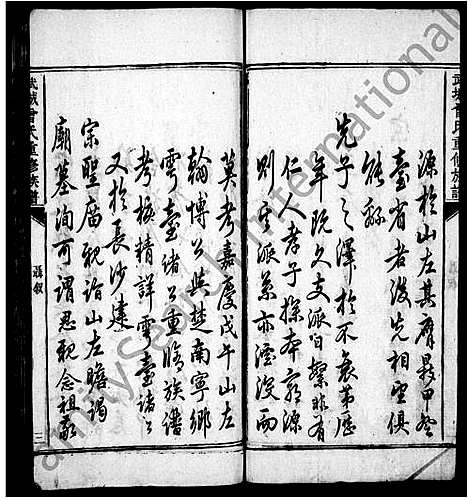 武城曾氏重修族譜
源於山左其膺昇平登
臺省者後先相望俱
能繇
先子之澤於不衰第歷
年既久支派日繁非有
仁人孝子探本窮源
則宗派策亦湮沒而
莫考嘉慶戊午山左
翰博公與楚南寧鄉
雩臺諸公重脩族譜
考核精詳雩臺諸公
又於長沙建
宗聖廟親詣山左瞻謁
廟墓洵可謂思親念祖敬
武城曾氏重修族譜
聶叙
三
Family Search International